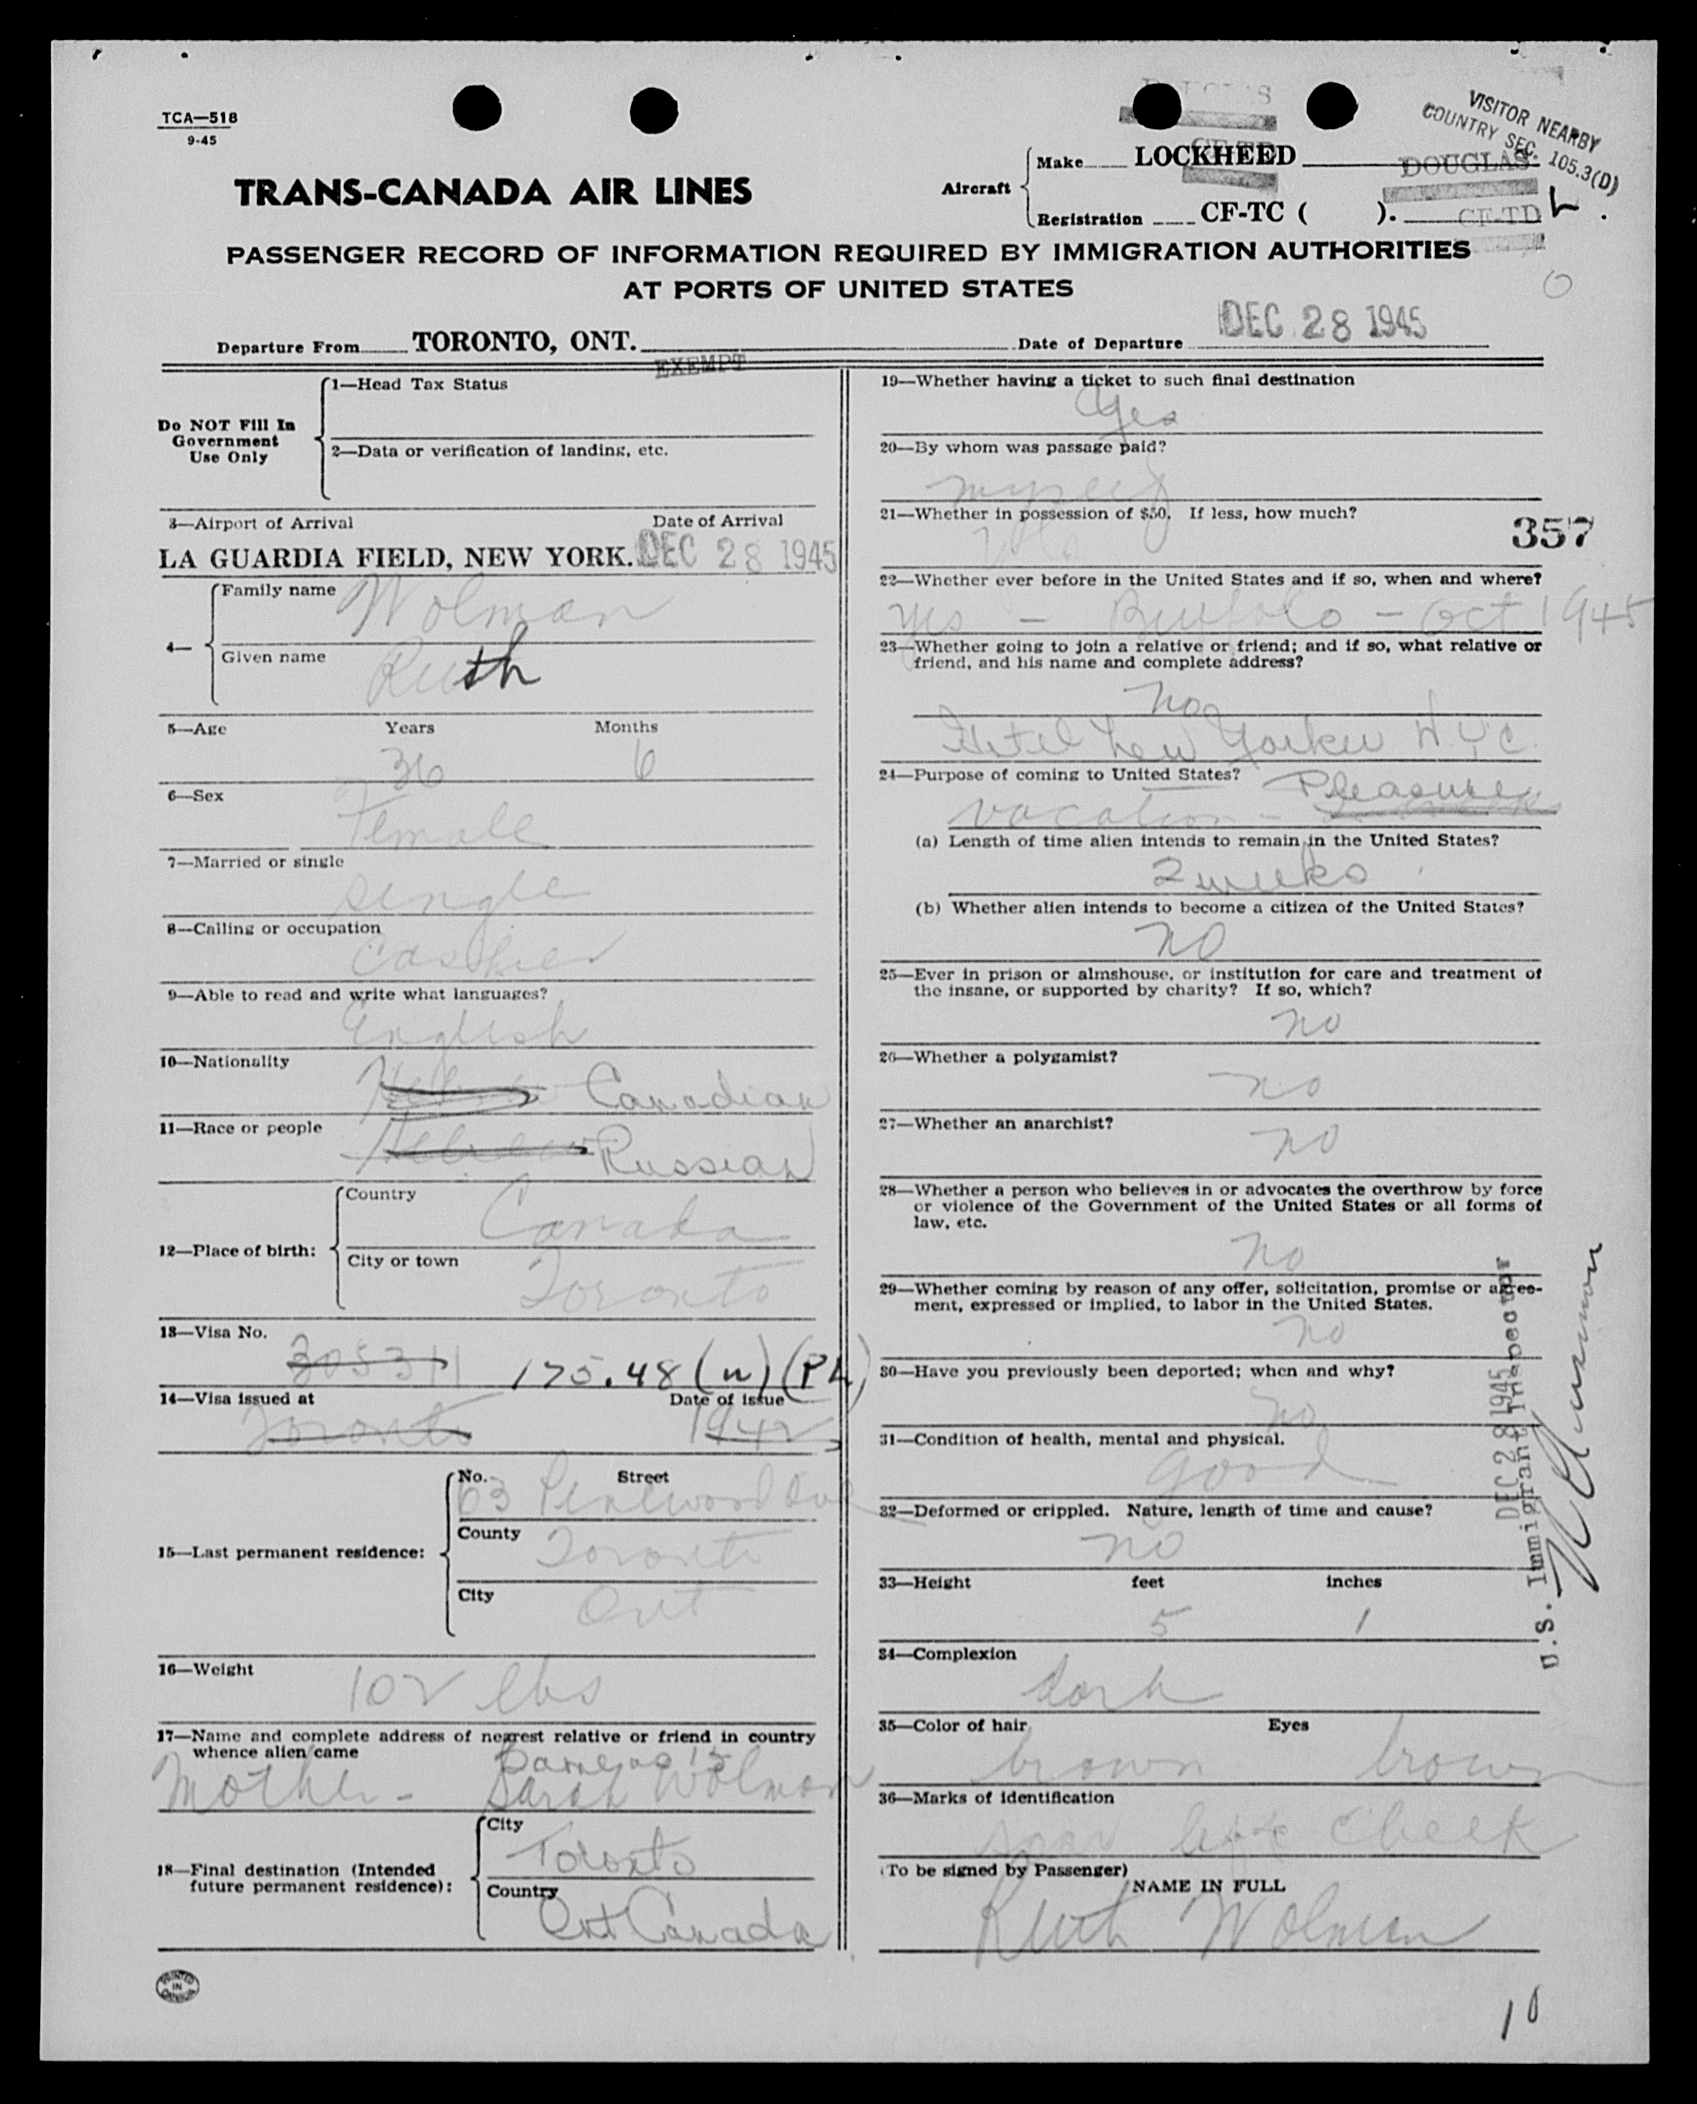 TCA—518
9-45
VISITOR NEARBY
COUNTRY SEC. 105.3(D)
Aircraft
Make LOCKHEED
DOUGLAS
Registration CF-TC ( ).
CF-TD
TRANS-CANADA AIR LINES
PASSENGER RECORD OF INFORMATION REQUIRED BY IMMIGRATION AUTHORITIES
AT PORTS OF UNITED STATES
Departure From TORONTO, ONT.
Date of Departure DEC 28 1945
EXEMPT
Do NOT Fill In
Government
Use Only
1—Head Tax Status
2—Data or verification of landing, etc.
3—Airport of Arrival Date of Arrival
LA GUARDIA FIELD, NEW YORK. DEC 28 1945
4—
Family name Wolman
Given name Ruth
5—Age Years Months
36 6
6—Sex
Female
7—Married or single
single
8—Calling or occupation
Cashier
9—Able to read and write what languages?
English
10—Nationality
Canadian
11—Race or people
Hebrew Russian
12—Place of birth:
Country
Canada
City or town
Toronto
13—Visa No.
305311 175.48 (W) (PL)
14—Visa issued at Date of issue
Toronto 1942
15—Last permanent residence:
No. Street
63 Pinewood Ave
County
Toronto
City
Ont
16—Weight
102 lbs
17—Name and complete address of nearest relative or friend in country
whence alien came
Mother - Sarah Wolman
18—Final destination (Intended
future permanent residence):
City
Toronto
Country
Ont Canada
PRINTED
IN
CANADA
19—Whether having a ticket to such final destination
yes
20—By whom was passage paid?
myself
21—Whether in possession of $50. If less, how much?
357
22—Whether ever before in the United States and if so, when and where?
yes - Buffalo - Oct 1945
23—Whether going to join a relative or friend; and if so, what relative or
friend, and his name and complete address?
no
Hotel New Yorker N.Y.C.
24—Purpose of coming to United States?
Pleasure
vacation -
(a) Length of time alien intends to remain in the United States?
2 weeks
(b) Whether alien intends to become a citizen of the United States?
no
25—Ever in prison or almshouse, or institution for care and treatment of
the insane, or supported by charity? If so, which?
no
26—Whether a polygamist?
no
27—Whether an anarchist?
no
28—Whether a person who believes in or advocates the overthrow by force
or violence of the Government of the United States or all forms of
law, etc.
no
29—Whether coming by reason of any offer, solicitation, promise or agree-
ment, expressed or implied, to labor in the United States.
no
30—Have you previously been deported; when and why?
no
31—Condition of health, mental and physical.
good
32—Deformed or crippled. Nature, length of time and cause?
no
33—Height feet inches
5 1
34—Complexion
dark
35—Color of hair Eyes
brown brown
36—Marks of identification
scar left cheek
(To be signed by Passenger)
NAME IN FULL
Ruth Wolman
DEC 28 1945
U.S. Immigrant Inspector
10